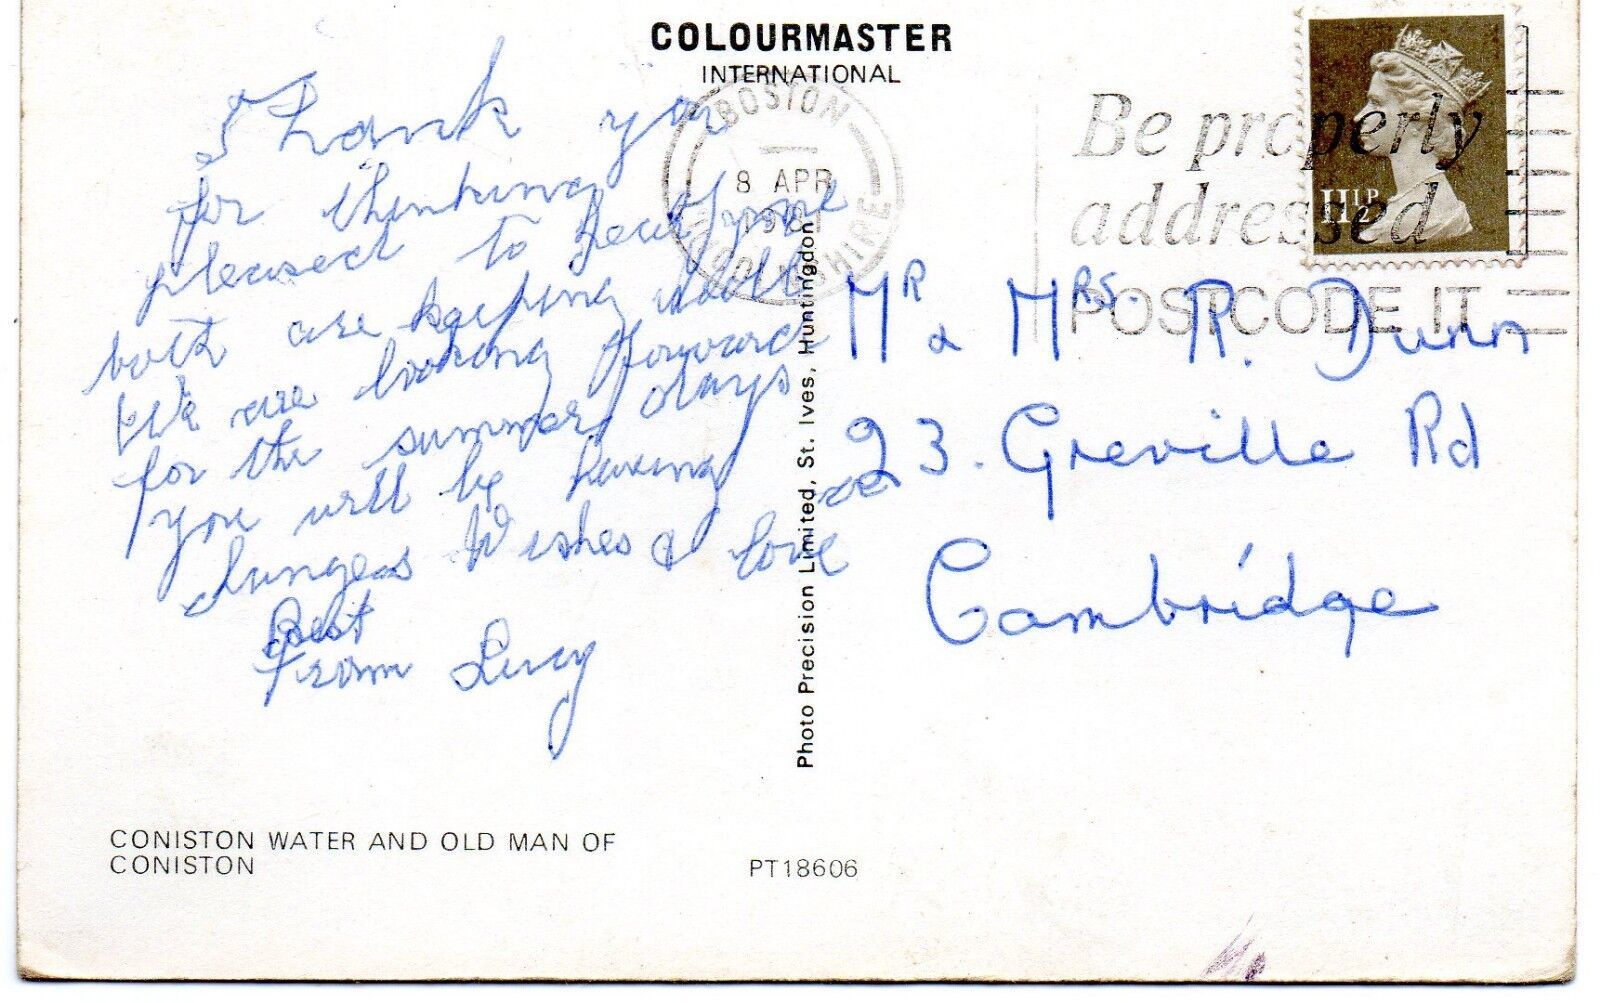 COLOURMASTER
INTERNATIONAL
BOSTON
8 APR
1981
LINCOLNSHIRE
Be properly
addressed
POSTCODE IT
11½P
Thank you
for thinking
pleased to hear
both are keeping well
We are looking forward
for the summer days
you will be having
changes
Best Wishes & love
From Lucy
Mr & Mrs. R. Dunn
23. Greville Rd
Cambridge
Photo Precision Limited, St. Ives, Huntingdon
CONISTON WATER AND OLD MAN OF
CONISTON
PT18606